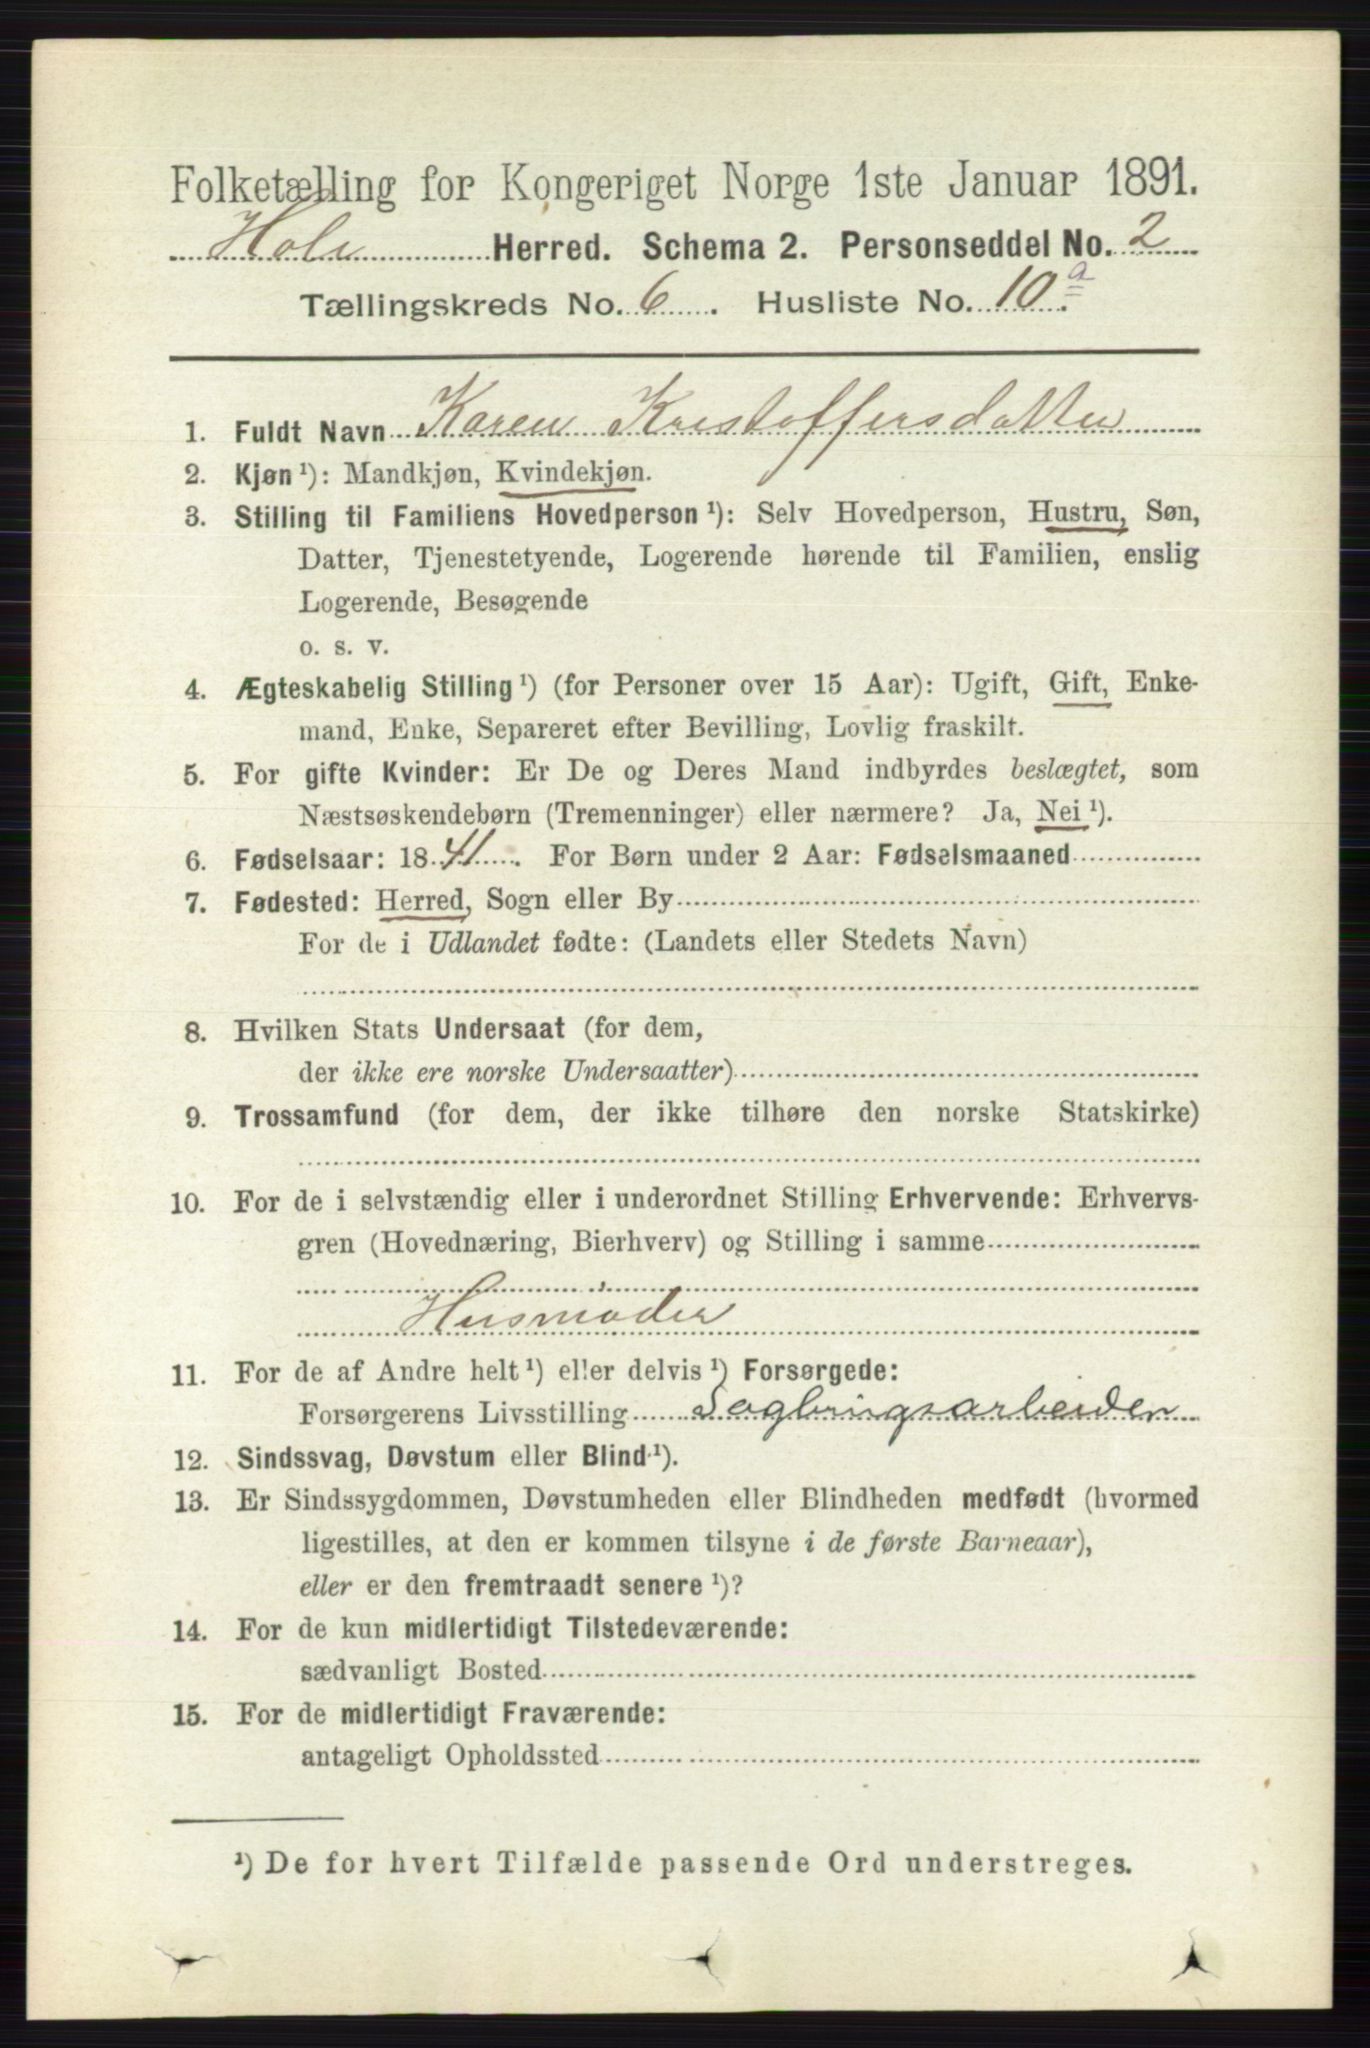 Folketælling for Kongeriget Norge 1ste Januar 1891.
Hole Herred. Schema 2. Personseddel No. 2
Tællingskreds No. 6. Husliste No. 10 a
1. Fuldt Navn Karen Kristoffersdatter
2. Kjøn ¹): Mandkjøn, Kvindekjøn.
3. Stilling til Familiens Hovedperson ¹): Selv Hovedperson, Hustru, Søn,
Datter, Tjenestetyende, Logerende hørende til Familien, enslig
Logerende, Besøgende
o. s. v.
4. Ægteskabelig Stilling ¹) (for Personer over 15 Aar): Ugift, Gift, Enke-
mand, Enke, Separeret efter Bevilling, Lovlig fraskilt.
5. For gifte Kvinder: Er De og Deres Mand indbyrdes beslægtet, som
Næstsøskendebørn (Tremenninger) eller nærmere? Ja, Nei ¹).
6. Fødselsaar: 1841. For Børn under 2 Aar: Fødselsmaaned
7. Fødested: Herred, Sogn eller By
For de i Udlandet fødte: (Landets eller Stedets Navn)
8. Hvilken Stats Undersaat (for dem,
der ikke ere norske Undersaatter)
9. Trossamfund (for dem, der ikke tilhøre den norske Statskirke)
10. For de i selvstændig eller i underordnet Stilling Erhvervende: Erhvervs-
gren (Hovednæring, Bierhverv) og Stilling i samme
Husmoder
11. For de af Andre helt ¹) eller delvis ¹) Forsørgede:
Forsørgerens Livsstilling Sagbrugsarbeider
12. Sindssvag, Døvstum eller Blind ¹).
13. Er Sindssygdommen, Døvstumheden eller Blindheden medfødt (hvormed
ligestilles, at den er kommen tilsyne i de første Barneaar),
eller er den fremtraadt senere ¹)?
14. For de kun midlertidigt Tilstedeværende:
sædvanligt Bosted
15. For de midlertidigt Fraværende:
antageligt Opholdssted
¹) De for hvert Tilfælde passende Ord understreges.